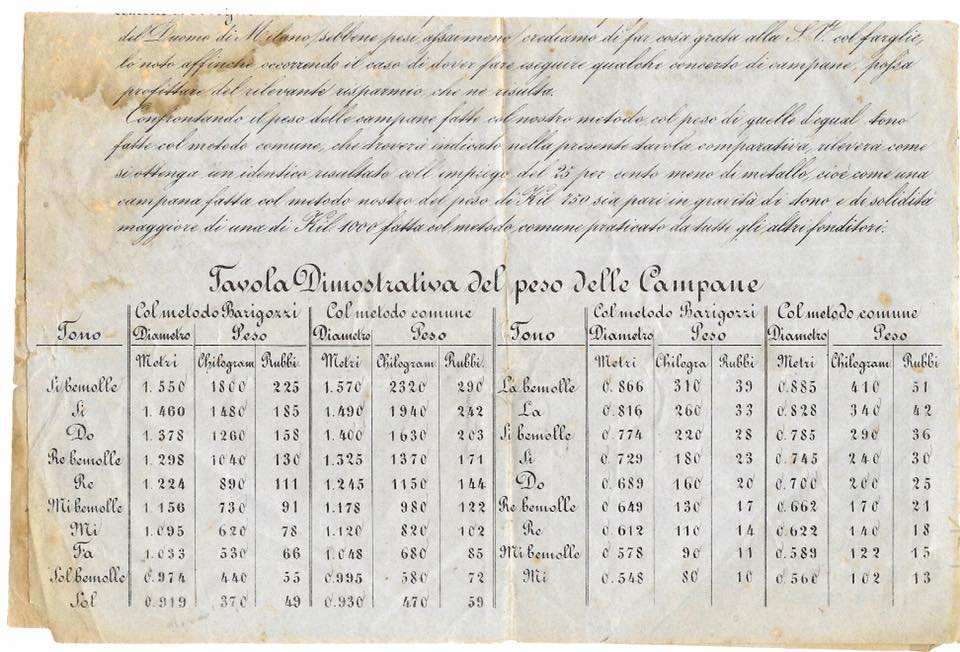 del Duomo di Milano, sebbene pesi assai meno, crediamo di far cosa grata alla S. V. col farglie,
lo noto affinchè occorrendo il caso di dover fare eseguire qualche concerto di campane, possa
profittare del rilevante risparmio, che ne risulta.
Confrontando il peso delle campane fatte col nostro metodo col peso di quelle d'egual tono
fatte col metodo comune, che troverà indicato nella presente tavola comparativa, rileverà come
si ottenga un identico risultato coll'empiego del 25 per cento meno di metallo, cioè come una
campana fatta col metodo nostro del peso di Kil 750 sia pari in gravità di tono e di solidità
maggiore di una di Kil 1000 fatta col metodo comune praticato da tutti gli altri fonditori.
Tavola Dimostrativa del peso delle Campane
Tono Col metodo Barigozzi Col metodo comune Tono Col metodo Barigozzi Col metodo comune
Diametro Peso Diametro Peso Diametro Peso Diametro Peso
Metri Chilogram Rubbi Metri Chilogram Rubbi. Metri Chilogra Rubbi Metri Chilogram Rubbi
Si bemolle 1.550 1800 225 1.570 2320 290 La bemolle 0.866 310 39 0.885 410 51
Si 1.460 1480 185 1.490 1940 242 La 0.816 260 33 0.828 340 42
Do 1.378 1260 158 1.400 1630 203 Si bemolle 0.774 220 28 0.785 290 36
Re bemolle 1.298 1040 130 1.325 1370 171 Si 0.729 180 23 0.745 240 30
Re 1.224 890 111 1.245 1150 144 Do 0.689 160 20 0.700 200 25
Mi bemolle 1.156 730 91 1.178 980 122 Re bemolle 0.649 130 17 0.662 170 21
Mi 1.095 620 78 1.120 820 102 Re 0.612 110 14 0.622 140 18
Fa 1.033 530 66 1.048 680 85 Mi bemolle 0.578 90 11 0.589 122 15
Sol bemolle 0.974 440 55 0.995 580 72 Mi 0.548 80 10 0.560 102 13
Sol 0.919 370 49 0.930 470 59